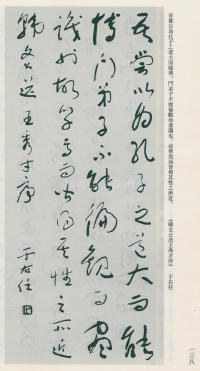 吾嘗以為孔子之道大而能博，門弟子不能徧觀而盡識也，故學焉而皆得其性之所近。 《韓文公送王秀才序》 于右任
一三八
吾嘗以為孔子之道大而能
博門弟子不能徧觀而盡
識也故學焉而皆得其性之所近
韓文公送王秀才序 于右任